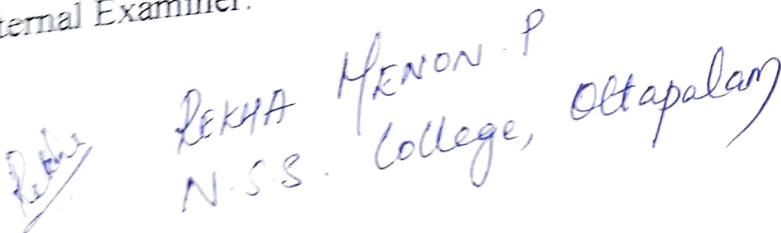 ternal Examiner:
REKHA MENON. P
N.S.S. College, Ottapalam
Rekha